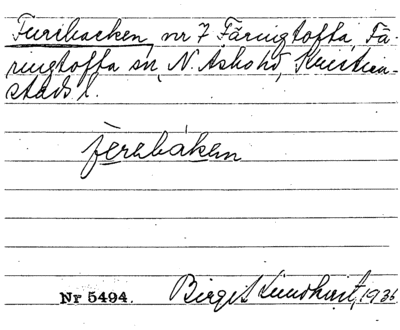 Furibacken, nr 7 Färingtofta, Fä-
ringtofta sn, N. Åsbo hd, Kristian-
stads l.
fẹrebákẹn
Nr 5494. Birgit Lundkvist, 1936